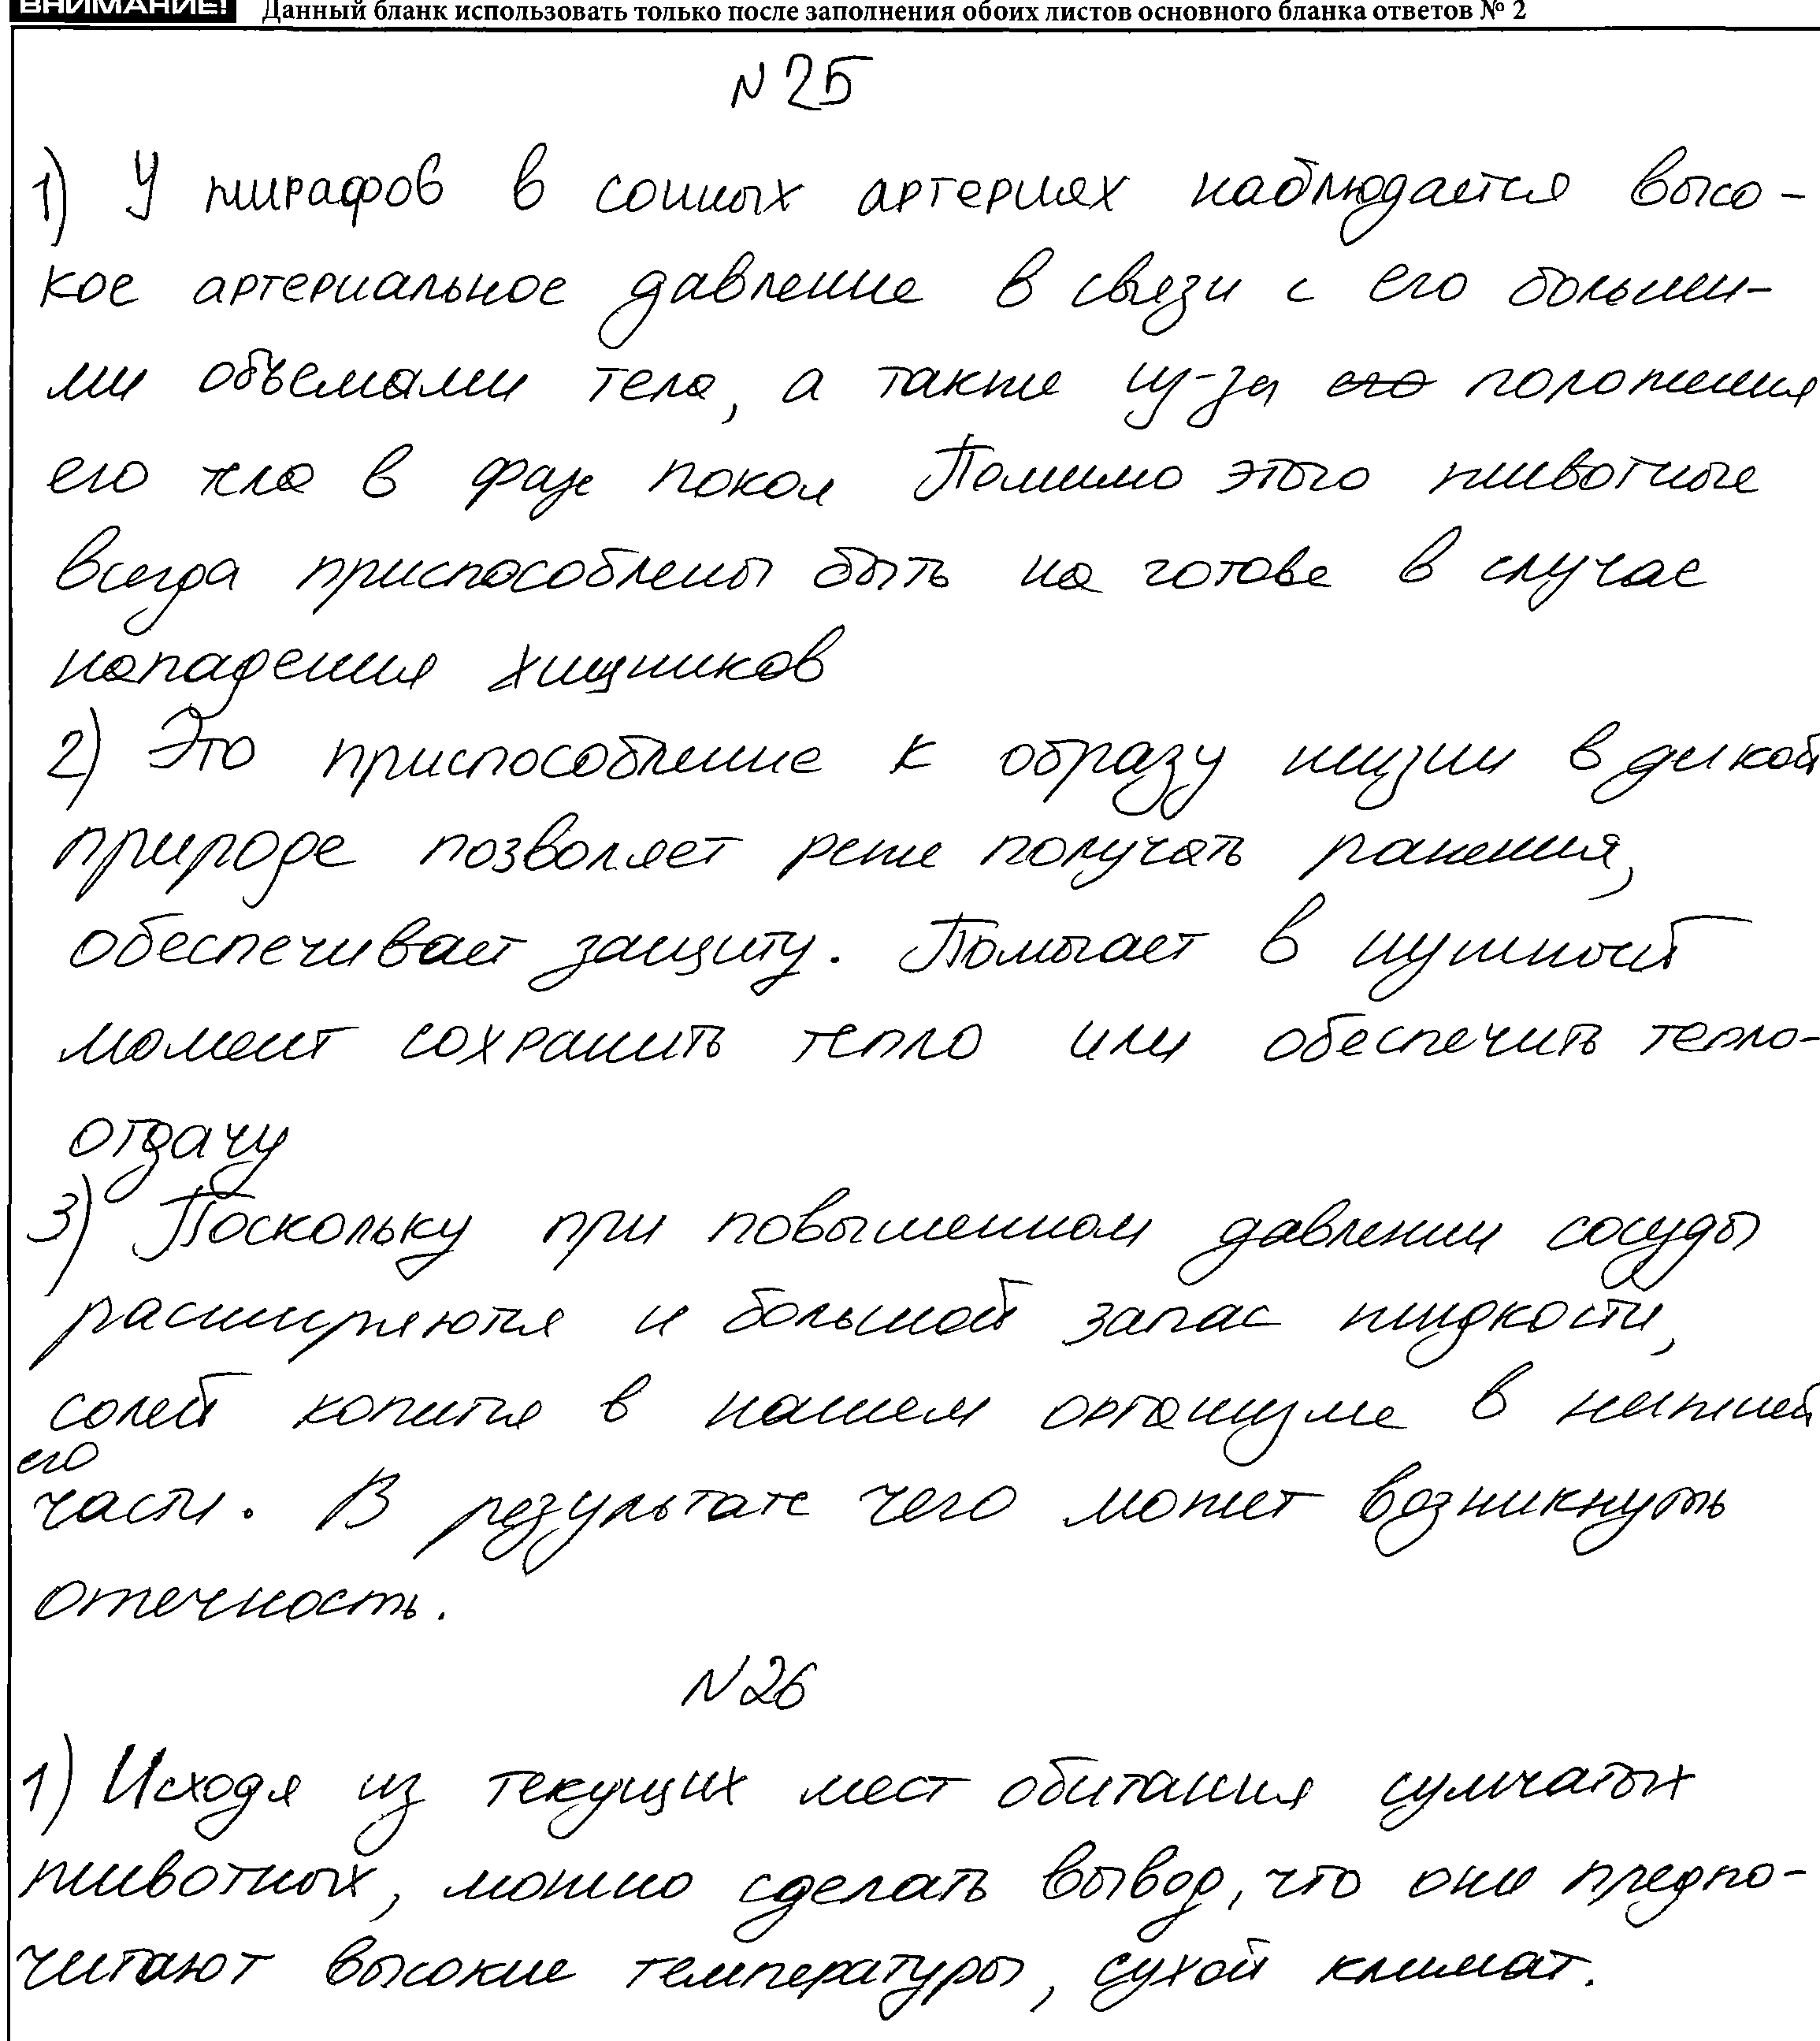 ВНИМАНИЕ! Данный бланк использовать только после заполнения обоих листов основного бланка ответов № 2
№ 25
1) У жирафов в сонных артериях наблюдается высо-
кое артериальное давление в связи с его больши-
ми объемами тела, а также из-за его положения
его тела в фазе покоя Помимо этого животные
всегда приспособлены быть на готове в случае
нападения хищников
2) Это приспособление к образу жизни в дикой
природе позволяет реже получать ранения,
обеспечивает защиту. Помогает в нужный
момент сохранить тепло или обеспечить тепло-
отдачу
3) Поскольку при повышенном давлении сосуды
расширяются и большой запас жидкости,
солей копится в нашем организме в нижней
его
части. В результате чего может возникнуть
отечность.
№ 26
1) Исходя из текущих мест обитания сумчатых
животных, можно сделать вывод, что они предпо-
читают высокие температуры, сухой климат.